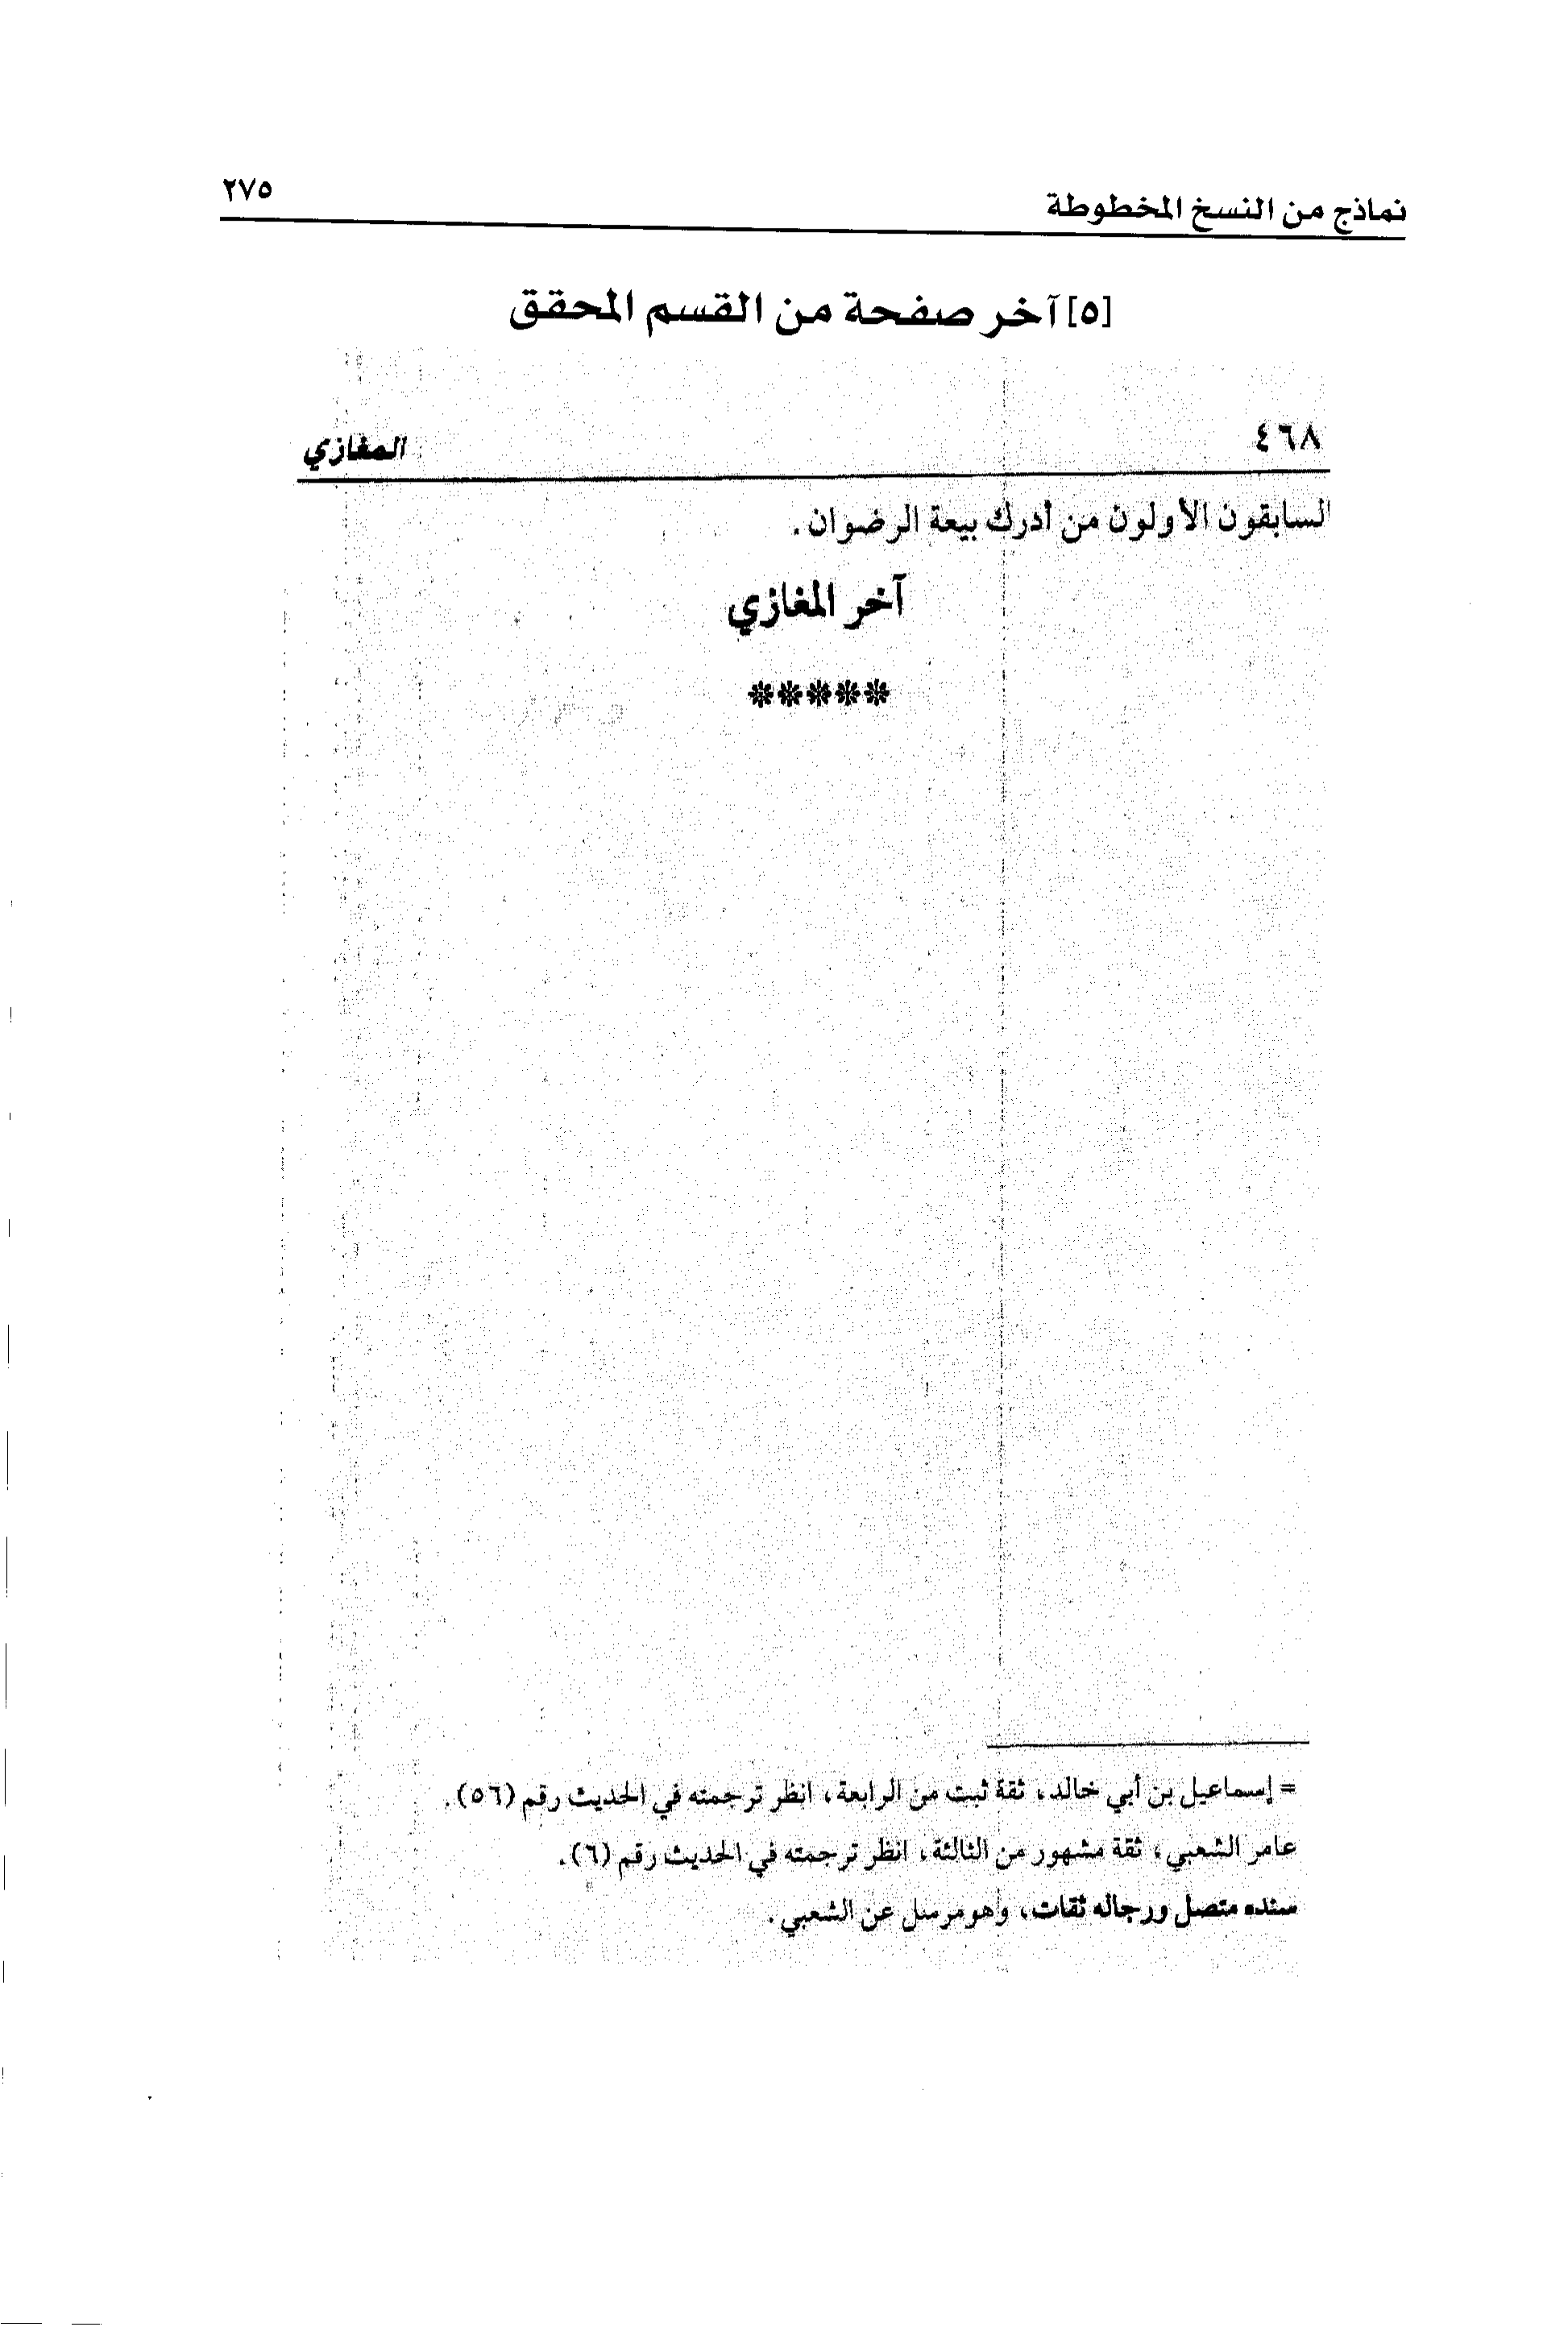 نماذج من النسخ المخطوطة ٢٧٥
[٥] آخر صفحة من القسم المحقق
٤٦٨ المغازي
السابقون الأولون من أدرك بيعة الرضوان .
آخر المغازي
*****
= إسماعيل بن أبي خالد، ثقة ثبت من الرابعة، انظر ترجمته في الحديث رقم (٥٦).
عامر الشعبي، ثقة مشهور من الثالثة، انظر ترجمته في الحديث رقم (٦).
سنده متصل ورجاله ثقات، وهو مرسل عن الشعبي.